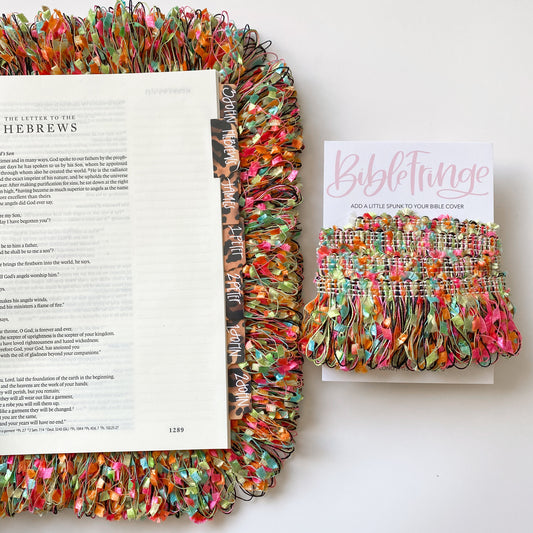 THE LETTER TO THE
HEBREWS
d's Son
times and in many ways, God spoke to our fathers by the proph-
last days he has spoken to us by his Son, whom he appointed
through whom also he created the world. He is the radiance
d the exact imprint of his nature, and he upholds the universe
power. After making purification for sins, he sat down at the right
on high, having become as much superior to angels as the name
more excellent than theirs.
e angels did God ever say,
re my Son,
ay I have begotten you"?
be to him a father,
nd he shall be to me a son"?
e brings the firstborn into the world, he says,
ll God's angels worship him."
says,
makes his angels winds,
and his ministers a flame of fire."
says,
throne, O God, is forever and ever,
the scepter of uprightness is the scepter of your kingdom.
have loved righteousness and hated wickedness;
therefore God, your God, has anointed you
with the oil of gladness beyond your companions."
, Lord, laid the foundation of the earth in the beginning,
and the heavens are the work of your hands;
they will perish, but you remain;
they will all wear out like a garment,
e a robe you will roll them up,
like a garment they will be changed.
t you are the same,
and your years will have no end."
1289
2 JOHN
1 JOHN
2 PETER
1 PETER
JAMES
HEBREWS
BibleFringe
ADD A LITTLE SPUNK TO YOUR BIBLE COVER